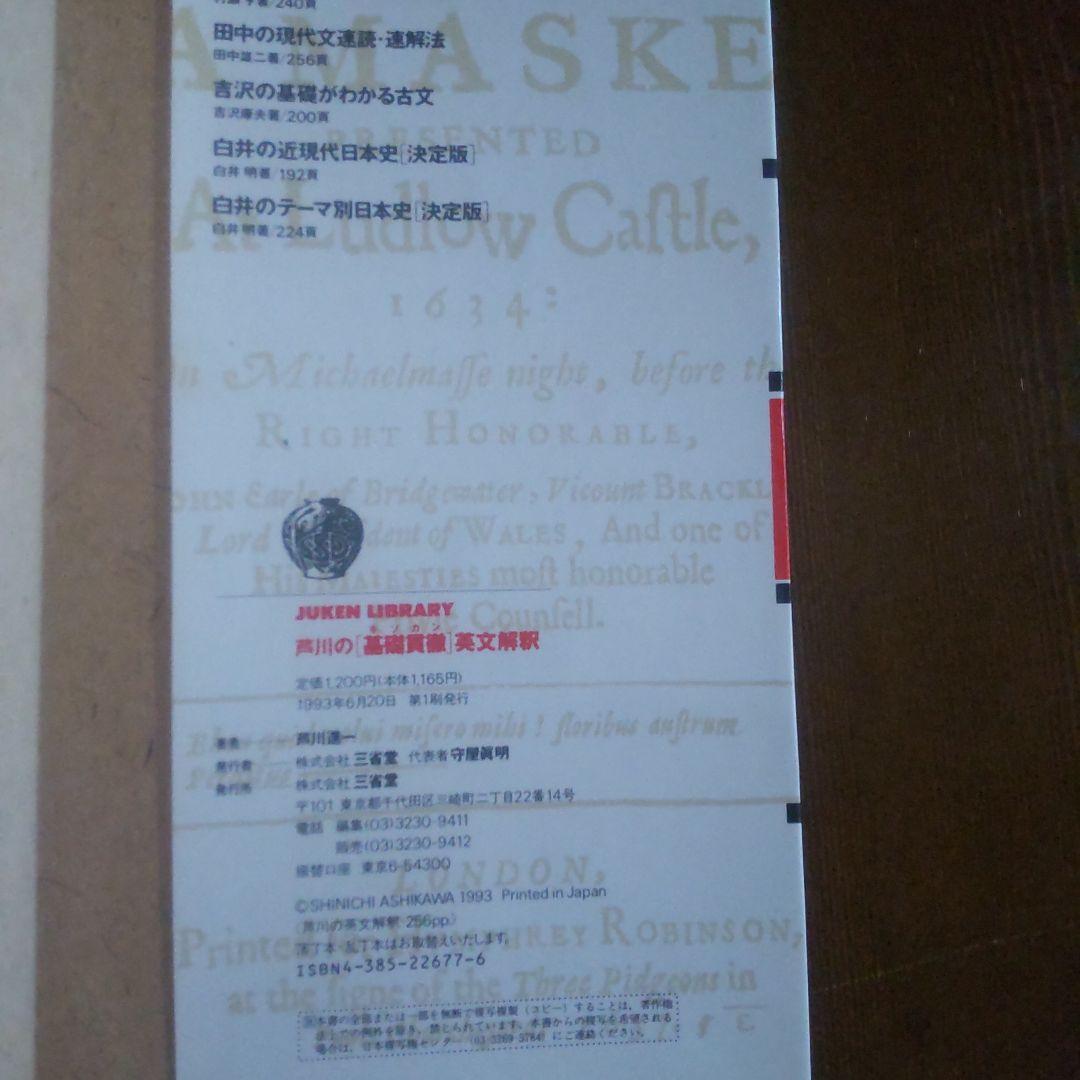 田中の現代文速読・速解法
田中雄二著/256頁
吉沢の基礎がわかる古文
吉沢康夫著/200頁
白井の近現代日本史[決定版]
白井 明著/192頁
白井のテーマ別日本史[決定版]
白井 明著/224頁
A MASKE
PRESENTED
At Ludlow Caſtle,
1634:
On Michaelmaſſe night, before the
RIGHT HONORABLE,
Earle of Bridgewater, Vicount BRACKL
Lord of WALES, And one of
His MAIESTIES moſt honorable
Counſell.
JUKEN LIBRARY
キソカン
芦川の[基礎貫徹]英文解釈
定価1,200円(本体1,165円)
1993年6月20日 第1刷発行
miſero mihi! floribus auſtrum
著者 芦川進一
発行者 株式会社 三省堂 代表者 守屋眞明
発行所 株式会社 三省堂
〒101 東京都千代田区三崎町二丁目22番14号
電話 編集(03)3230-9411
販売(03)3230-9412
振替口座 東京6-54300
LONDON,
©SHINICHI ASHIKAWA 1993 Printed in Japan
〈芦川の英文解釈・256pp.〉
Printed HVMPHREY ROBINSON,
落丁本・乱丁本はお取替えいたします。
ISBN4-385-22677-6
at the ſigne of the Three Pidgeons in
本書の全部または一部を無断で複写複製(コピー)することは、著作権
法上での例外を除き、禁じられています。本書からの複写を希望される
場合は、日本複写権センター(03-3269-5784)にご連絡ください。